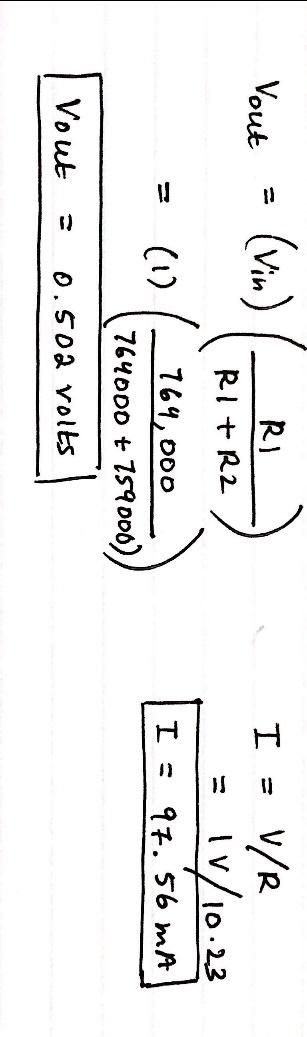 Vout = (Vin) (R1 / R1 + R2)
= (1) (764,000 / 764000 + 759000)
Vout = 0.502 volts
I = V/R
= 1V/10.23
I = 97.56 mA